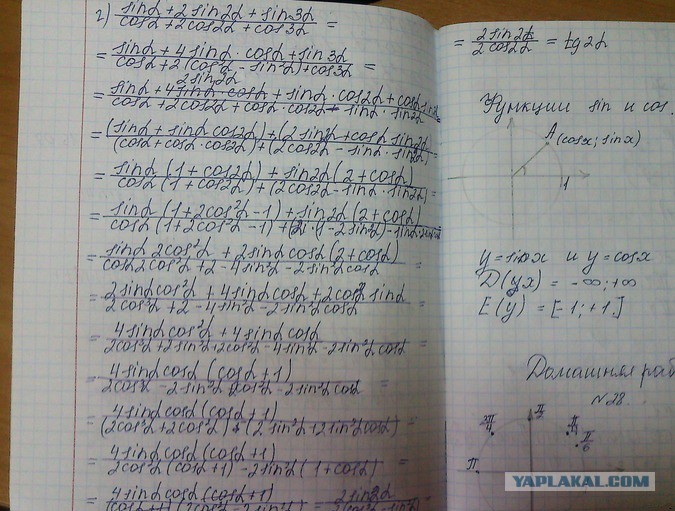 г) (sinα + 2sin2α + sin3α)/(cosα + 2cos2α + cos3α) =
= (sinα + 4sinα · cosα + sin3α)/(cosα + 2(cos²α - sin²α) + cos3α) =
2sin2α
= (sinα + 4sinα · cosα + sinα · cos2α + cosα sin2α)/(cosα + 2cos2α + cosα · cos2α - sinα · sin2α) =
= ((sinα + sinα cos2α) + (2sin2α + cosα sin2α))/((cosα + cosα · cos2α) + (2cos2α - sinα · sin2α)) =
= (sinα (1 + cos2α) + sin2α (2 + cosα))/(cosα (1 + cos2α) + (2cos2α - sinα · sin2α)) =
= (sinα (1 + 2cos²α - 1) + sin2α (2 + cosα))/(cosα (1 + 2cos²α - 1) + (2 · (1 - 2sin²α) - sinα
= (sinα 2cos²α + 2sinα cosα (2 + cosα))/(cosα 2cos²α + 2 - 4sin²α - 2sin²α cosα) =
= (2sinα cos²α + 4sinα cosα + 2cos²α sinα)/(2cos³α + 2 - 4sin²α - 2sin²α cosα) =
= (4sinα cos²α + 4sinα cosα)/(2cos³α + 2sin²α + 2cos²α - 4sin²α - 2sin²α cosα) =
= (4sinα cosα (cosα + 1))/(2cos³α - 2sin²α + 2cos²α - 2sin²α cosα) =
= (4sinα cosα (cosα + 1))/((2cos³α + 2cos²α) - (2sin²α + 2sin²α cosα)) =
= (4sinα cosα (cosα + 1))/(2cos²α (cosα + 1) - 2sin²α (1 + cosα)) =
= (4sinα cosα (cosα + 1))/((cosα + 1)(2cos²α - 2sin²α)) = (2sin2α)/(2(cos²α - sin²α)) =
= (2sin2α)/(2cos2α) = tg2α
Функции sin и cos.
A (cosx; sinx)
1
y = sinx и y = cosx
D(yx) = -∞; +∞
E(y) = [-1; +1]
Домашняя раб
N28.
π/2
π/6
π
YAPLAKAL.COM